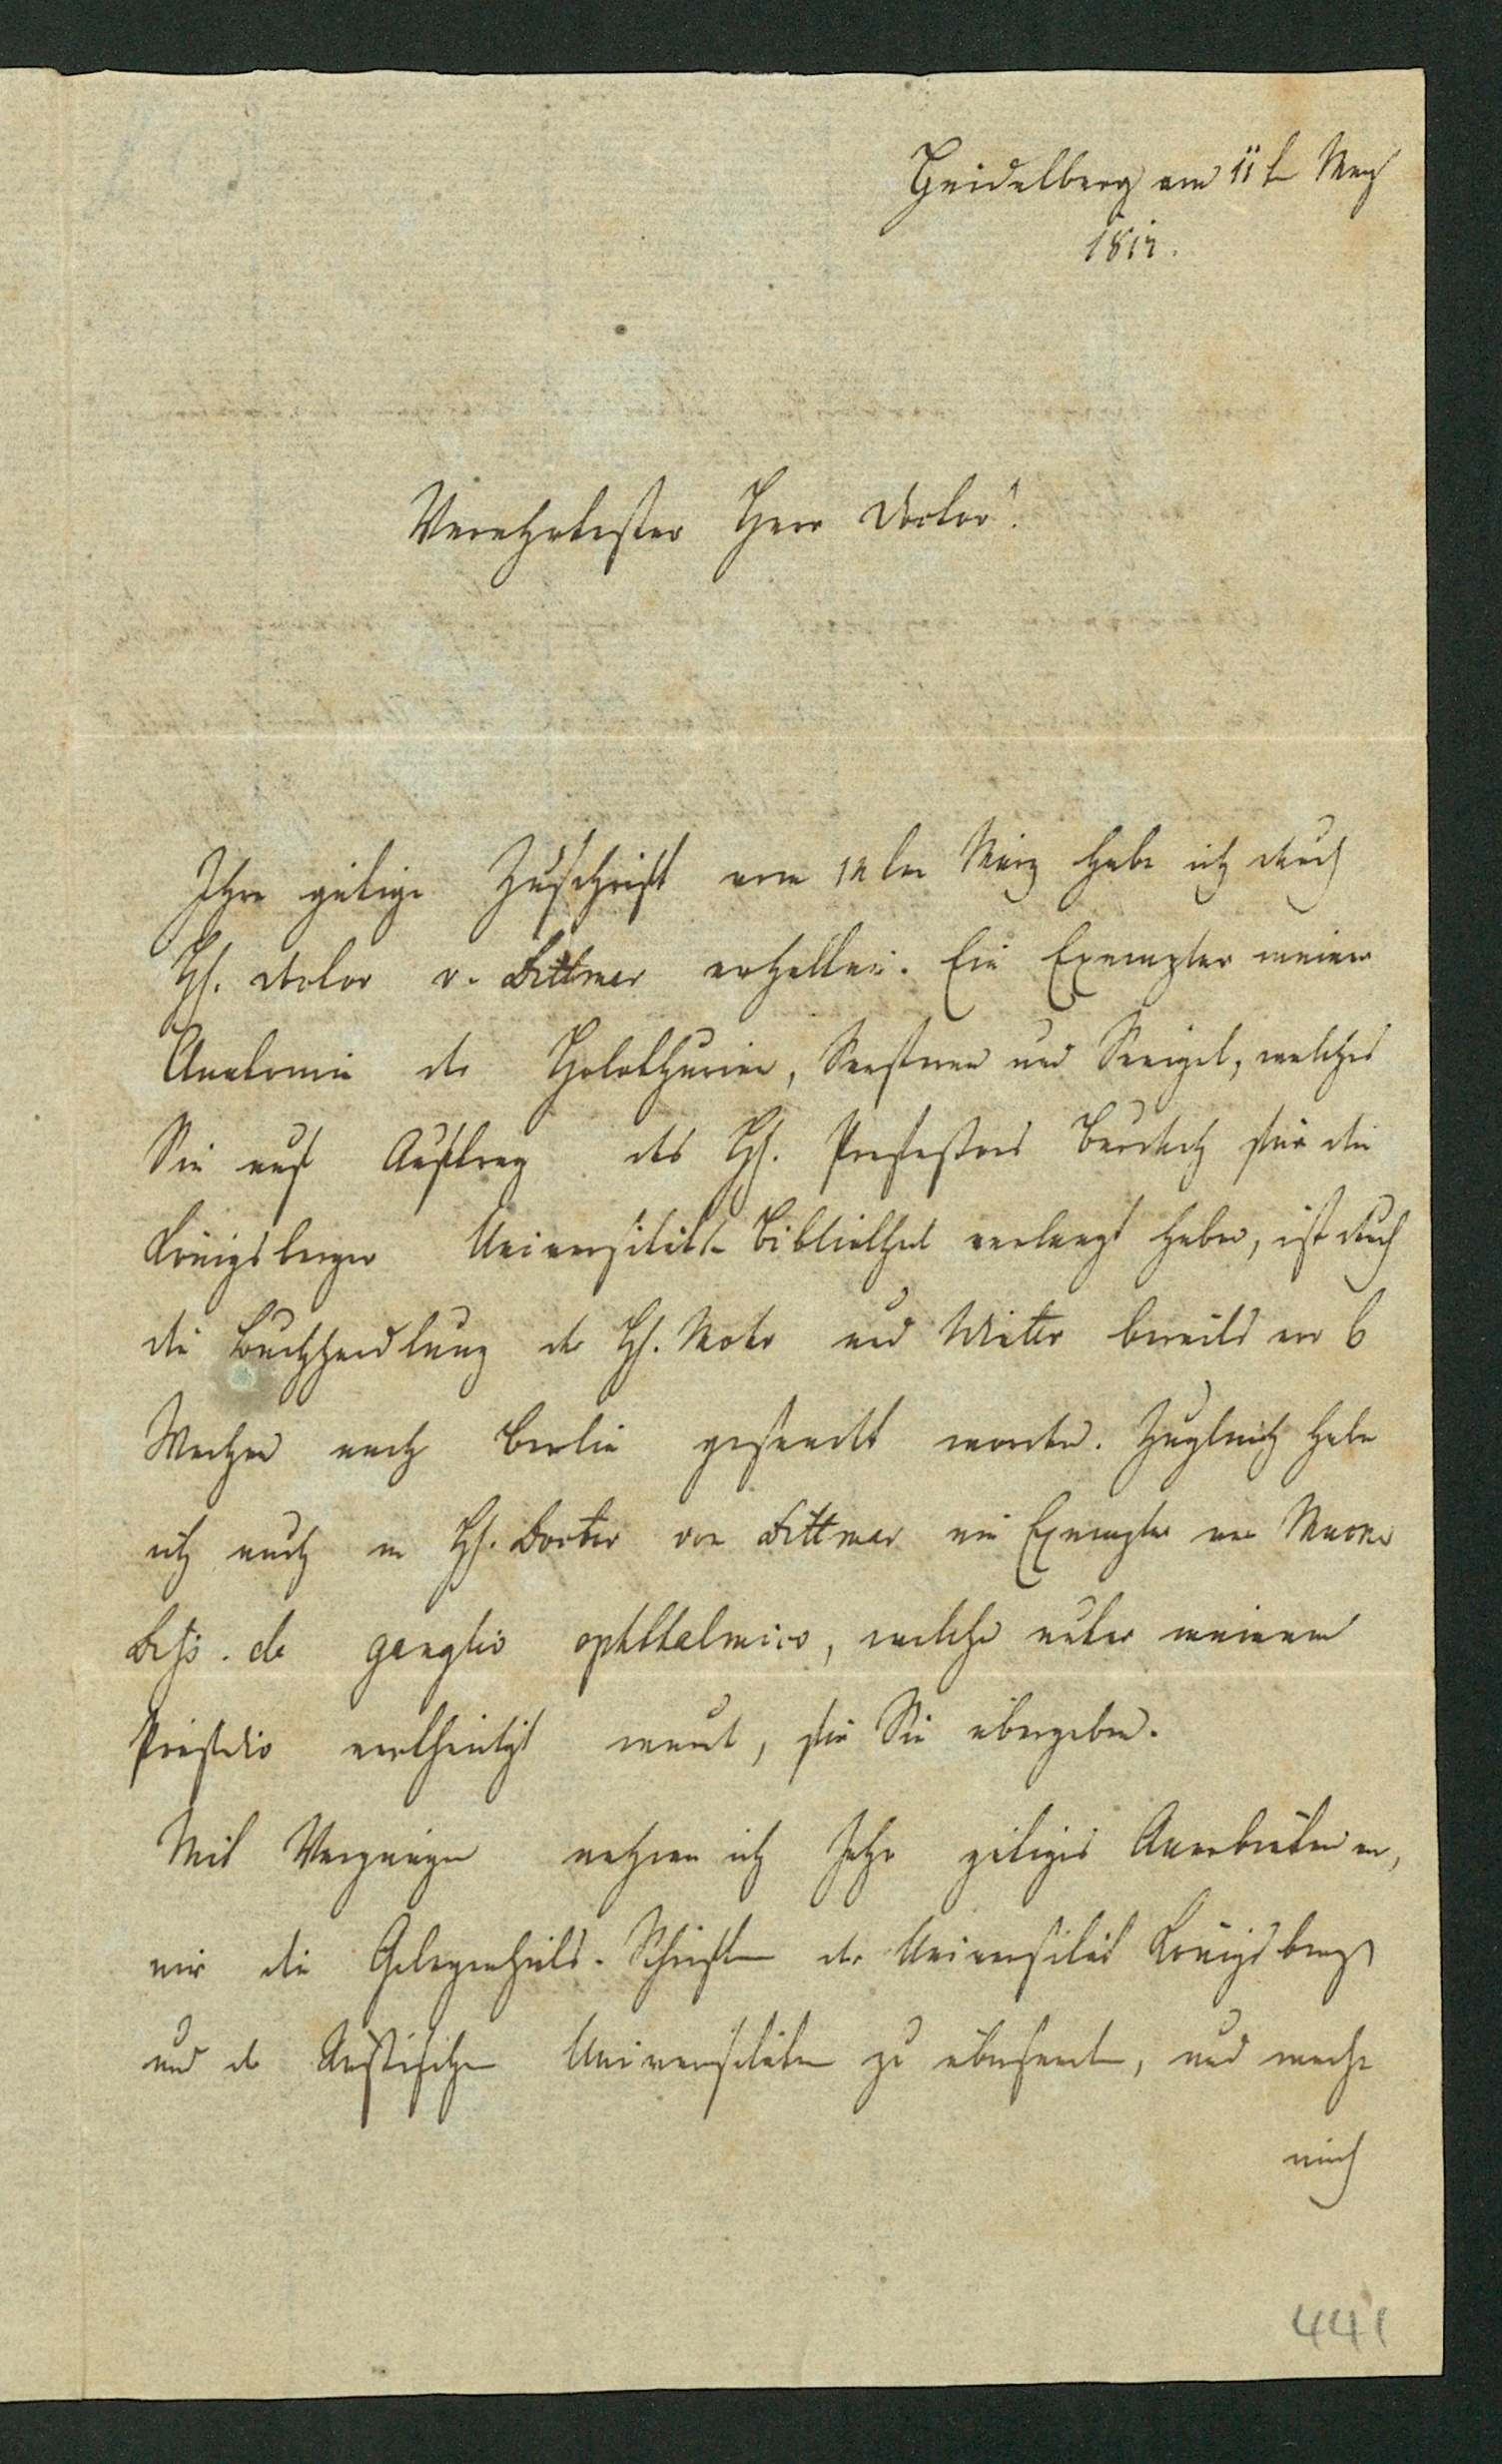 Heidelberg am 11t May
1817.
Verehrtester Herr Doctor!
Ihre gütige Zuschrift vom 12ten März habe ich durch
H. Doctor v. Dittmar erhalten. Ein Exemplar meiner
Anatomie der Holothurien, Seesterne und Seeigel, welches
Sie auf Auftrag des H. Professors Burdach für die
Königsberger Universitäts Bibliothek verlangt haben, ist durch
die Buchhandlung der H. Mohr und Winter bereits vor 6
Wochen nach Berlin gesandt worden. Zugleich habe
ich auch an H. Doctor von Dittmar ein Exemplar von Mucks
Diss. de ganglio ophthalmico, welche unter meinem
Präsidio vertheidigt wurd, für Sie übergeben.
Mit Vergnügen nehme ich Ihr gütiges Anerbieten an,
mir die Gelegenheits-Schriften der Universität Königsberg
und der Russischen Universitäten zu übersenden, und mache
mich
441